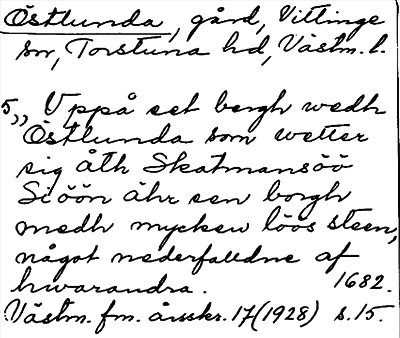 Östlunda, gård, Vittinge
sn, Torstuna hd, Västm. l.
5,, Uppå eet bergh wedh
Östlunda som wetter
sig åth Skatmansöö
Siöön ähr een borgh
medh myckew löös steen,
något nederfalldne af
hwarandra. 1682.
Västm. fm. årsskr. 17 (1928) s. 15.